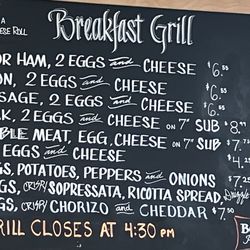 A
ESE ROLL
Breakfast Grill
OR HAM, 2 EGGS and CHEESE $6.55
ON, 2 EGGS and CHEESE $6.55
SAGE, 2 EGGS and CHEESE $6.55
K, 2 EGGS and CHEESE ON 7" SUB $8.99
BLE MEAT, EGG, CHEESE ON 7" SUB $7
EGGS and CHEESE $4.25
GS, POTATOES, PEPPERS and ONIONS $7.25
GS, CRISPY SOPRESSATA, RICOTTA SPREAD,
GS, CRISPY CHORIZO and CHEDDAR $7.50
RILL CLOSES AT 4:30 PM